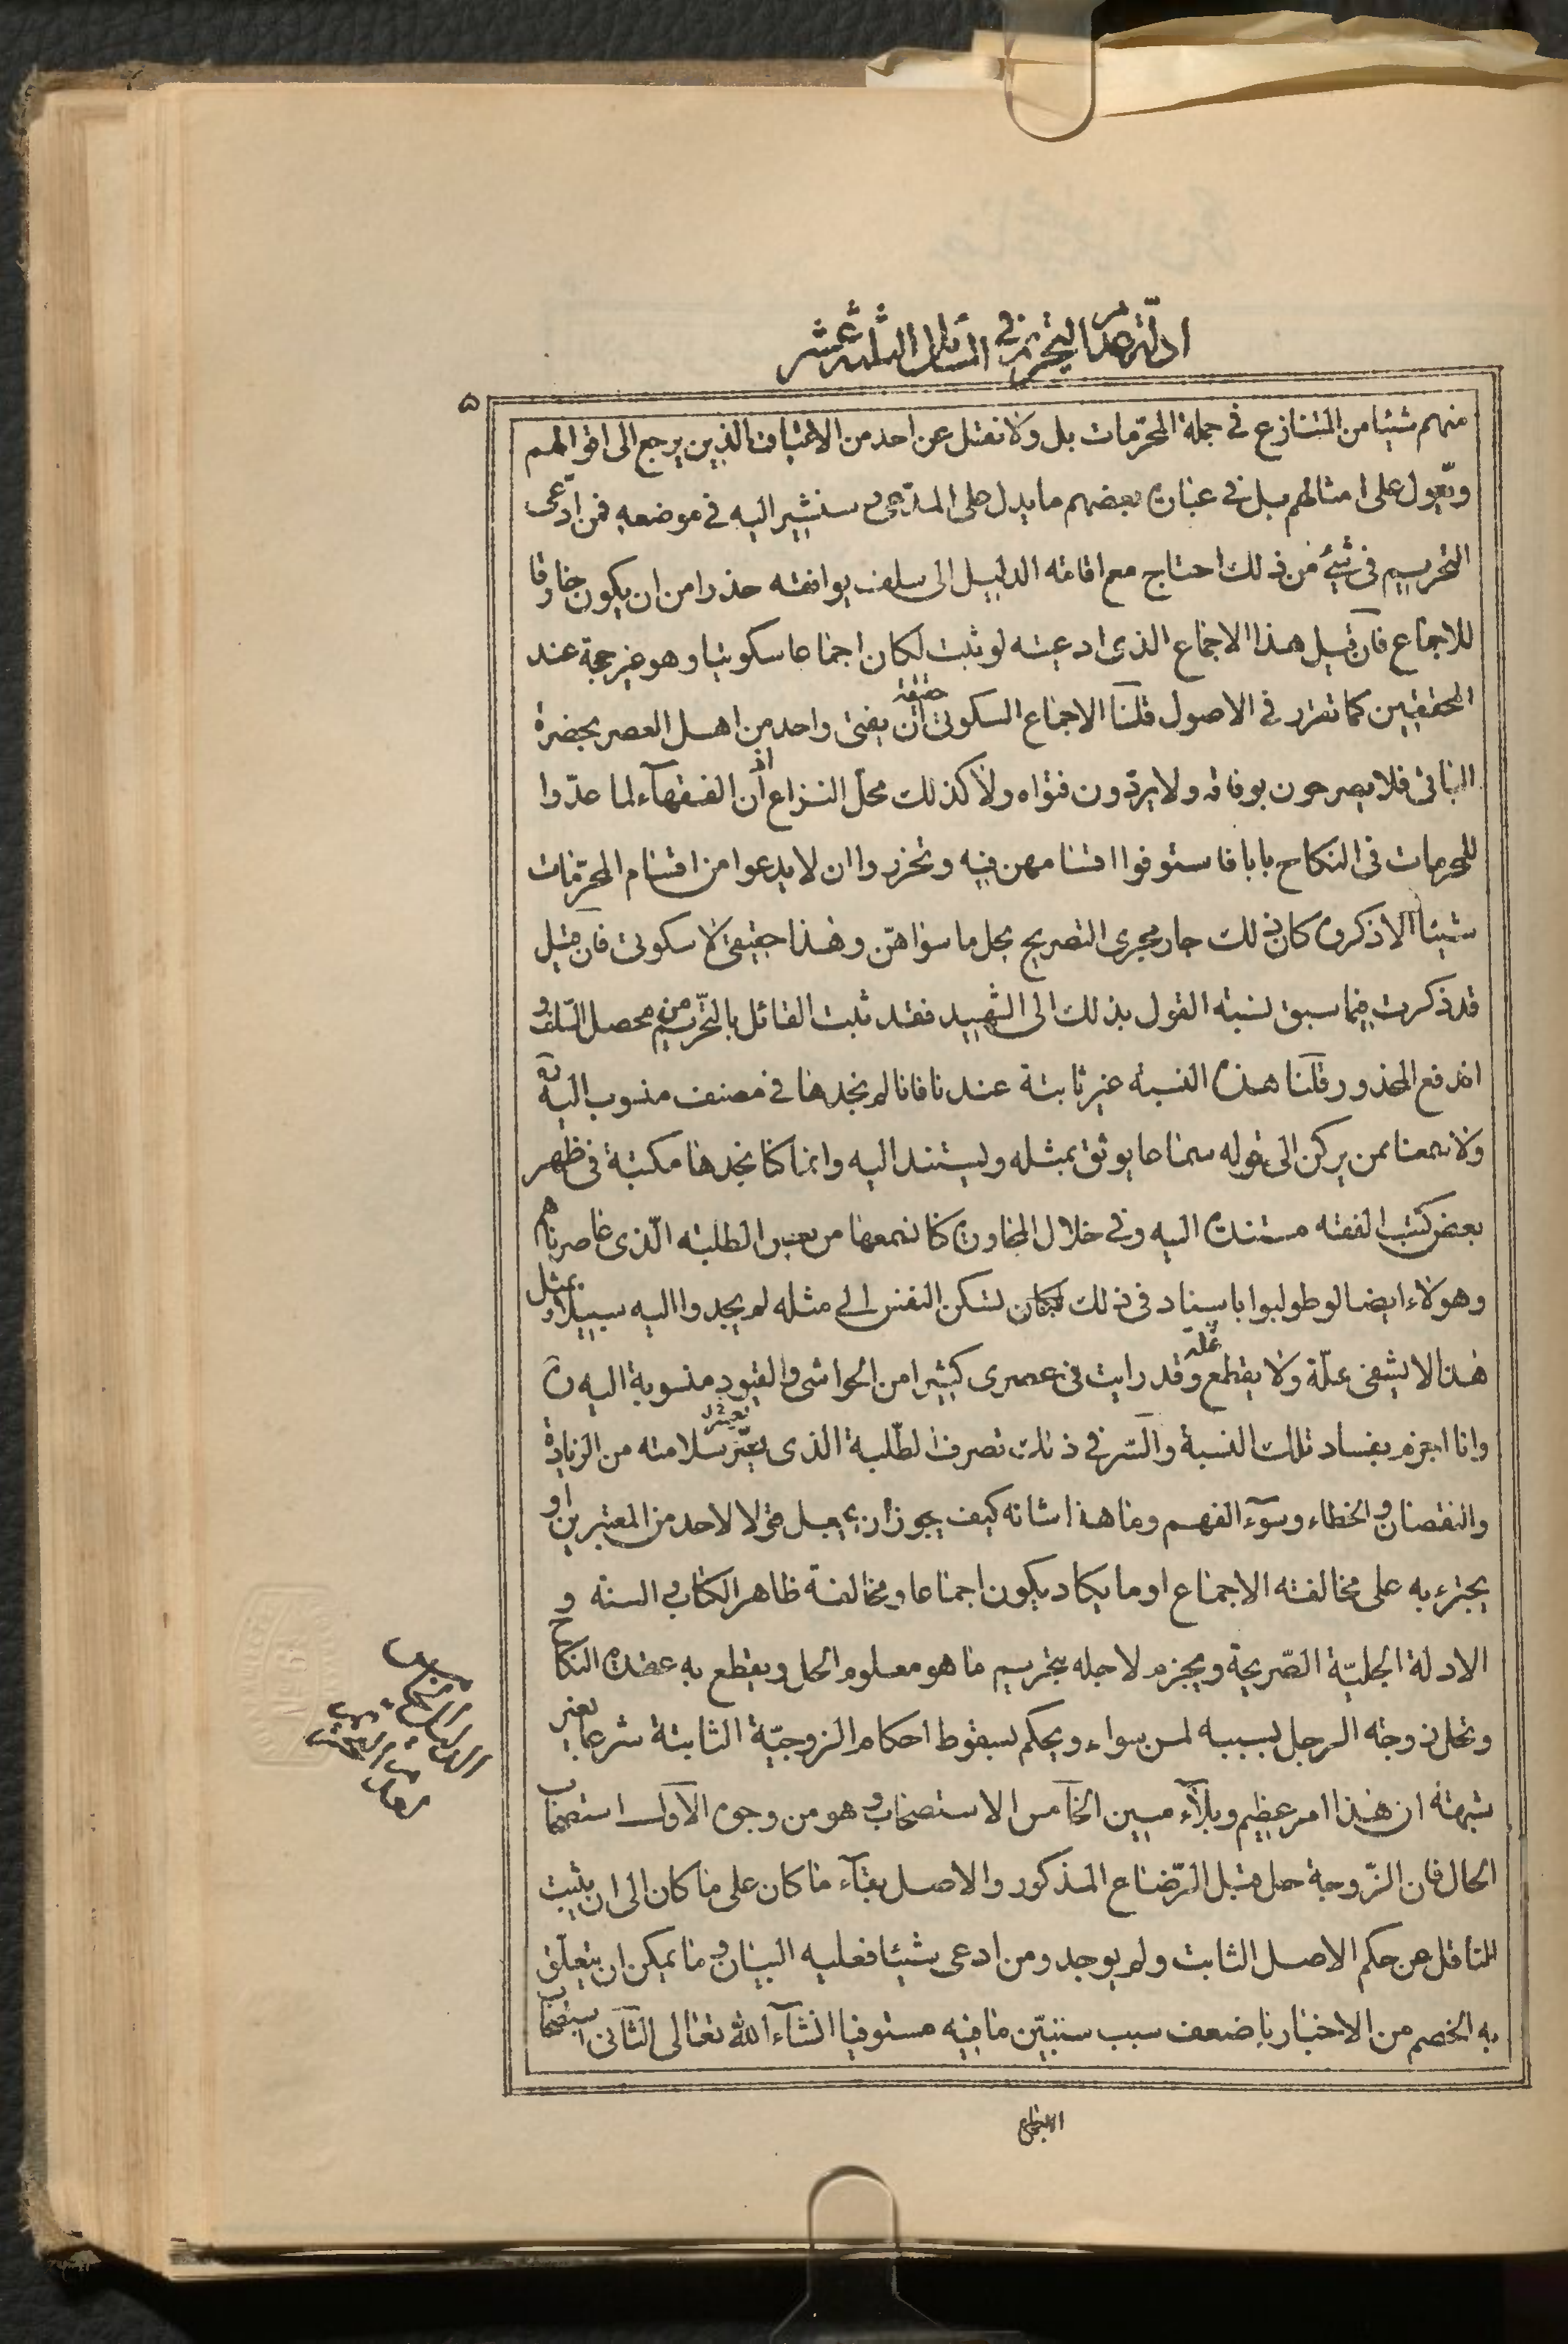 ادلّة عدم التحريم في المسائل الثلثة عشر
۵
منهم شيئا من المتنازع في جملة المحرّمات بل ولا نقتل عن احد من الاثبات الذين يرجع الى اقوالهم
ويعول على امثالهم بل في عبارة بعضهم ما يدل على المدّعى وسنشير اليه في موضعه فمن ادّعى
التحريم في شئ من ذلك احتاج مع اقامة الدليل الى سلف يوافقه حذرا من ان يكون خارقا
للاجماع فان قيل هذا الاجماع الذى ادعيته لو ثبت لكان اجماعا سكوتيا وهو غير حجة عند
المحققين كما تقرر في الاصول قلنا الاجماع السكوتى حقيقة ان يفتى واحد من اهل العصر بحضرة
الباقى فلا يصرحون بوفاقه ولا يردّون فتواه ولا كذلك محلّ النزاع اذ ان الفقهآء لما عدّوا
للمحرمات في النكاح بابا فاستوفوا اقسامهن فيه وتحرروا ان لا يدعوا من اقسام المحرّمات
شيئا الا ذكروه كان ذلك جار مجرى التصريح بحل ما سواهنّ وهذا حقيقى لا سكوتى فان قيل
قد ذكرت فيما سبق نسبة القول بذلك الى الشهيد فقد ثبت القائل بالتحريم من محصل السّلف و
اندفع المحذور قلنا هذه النسبة غير ثابتة عندنا فانا لم نجدها في مصنف منسوب اليه
ولا سمعنا ممن يركن الى قوله سماعا يوثق بمثله ويستند اليه وانما كنا نجدها مكتبة في ظهر
بعض كتب الفقه مستندة اليه وفي خلال المحاورة كنا نسمعها من بعض الطلبة الّذى عاصرناهم
وهولاء ايضا لو طولبوا باسناد في ذلك لتسكن النفس الى مثله لم يجدوا اليه سبيلا و بمثل
هذا لا يشفى علّة ولا يقطع غلة وقد رايت في عصرى كثيرا من الحواشى والقيود منسوبة اليه
وانا اجزم بفساد تلك النسبة والسّر في ذلك تصرف الطّلبة الذى يعزّ سلامته من الزيادة
والنقصان والخطاء وسوء الفهم وما هذا شانه كيف يجوز ان يجعل قولا لاحد من المعتبرين او
يجترء به على مخالفة الاجماع او ما يكاد يكون اجماعا ومخالفة ظاهر الكتاب والسنة و
الادلة الجليّة الصّريحة ويجزم لاجله بتحريم ما هو معلوم الحل ويقطع به عقدة النكاح
وتحل زوجة الرجل بسببه لمن سواه ويحكم بسقوط احكام الزوجيّة الثابتة شرعا بغير
شبهة ان هذا امر عظيم وبلآء مبين الخامس الاستصحاب وهو من وجوه الاول استصحاب
الحال فان الزّوجة حل قبل الرّضاع المذكور والاصل بقآء ما كان على ما كان الى ان يثبت
الناقل عن حكم الاصل الثابت ولم يوجد ومن ادعى شيئا فعليه البيان وما يمكن ان يتعلّق
به الخصم من الاخبار باضعف سبب سنبيّن ما فيه مستوفيا انشاء الله تعالى الثانى استصحاب
الاجماع